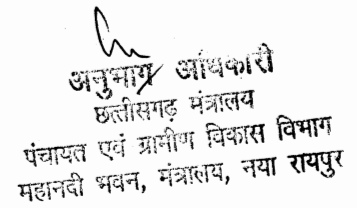 अनुभाग अधिकारी
छत्तीसगढ़ मंत्रालय
पंचायत एवं ग्रामीण विकास विभाग
महानदी भवन, मंत्रालय, नया रायपुर